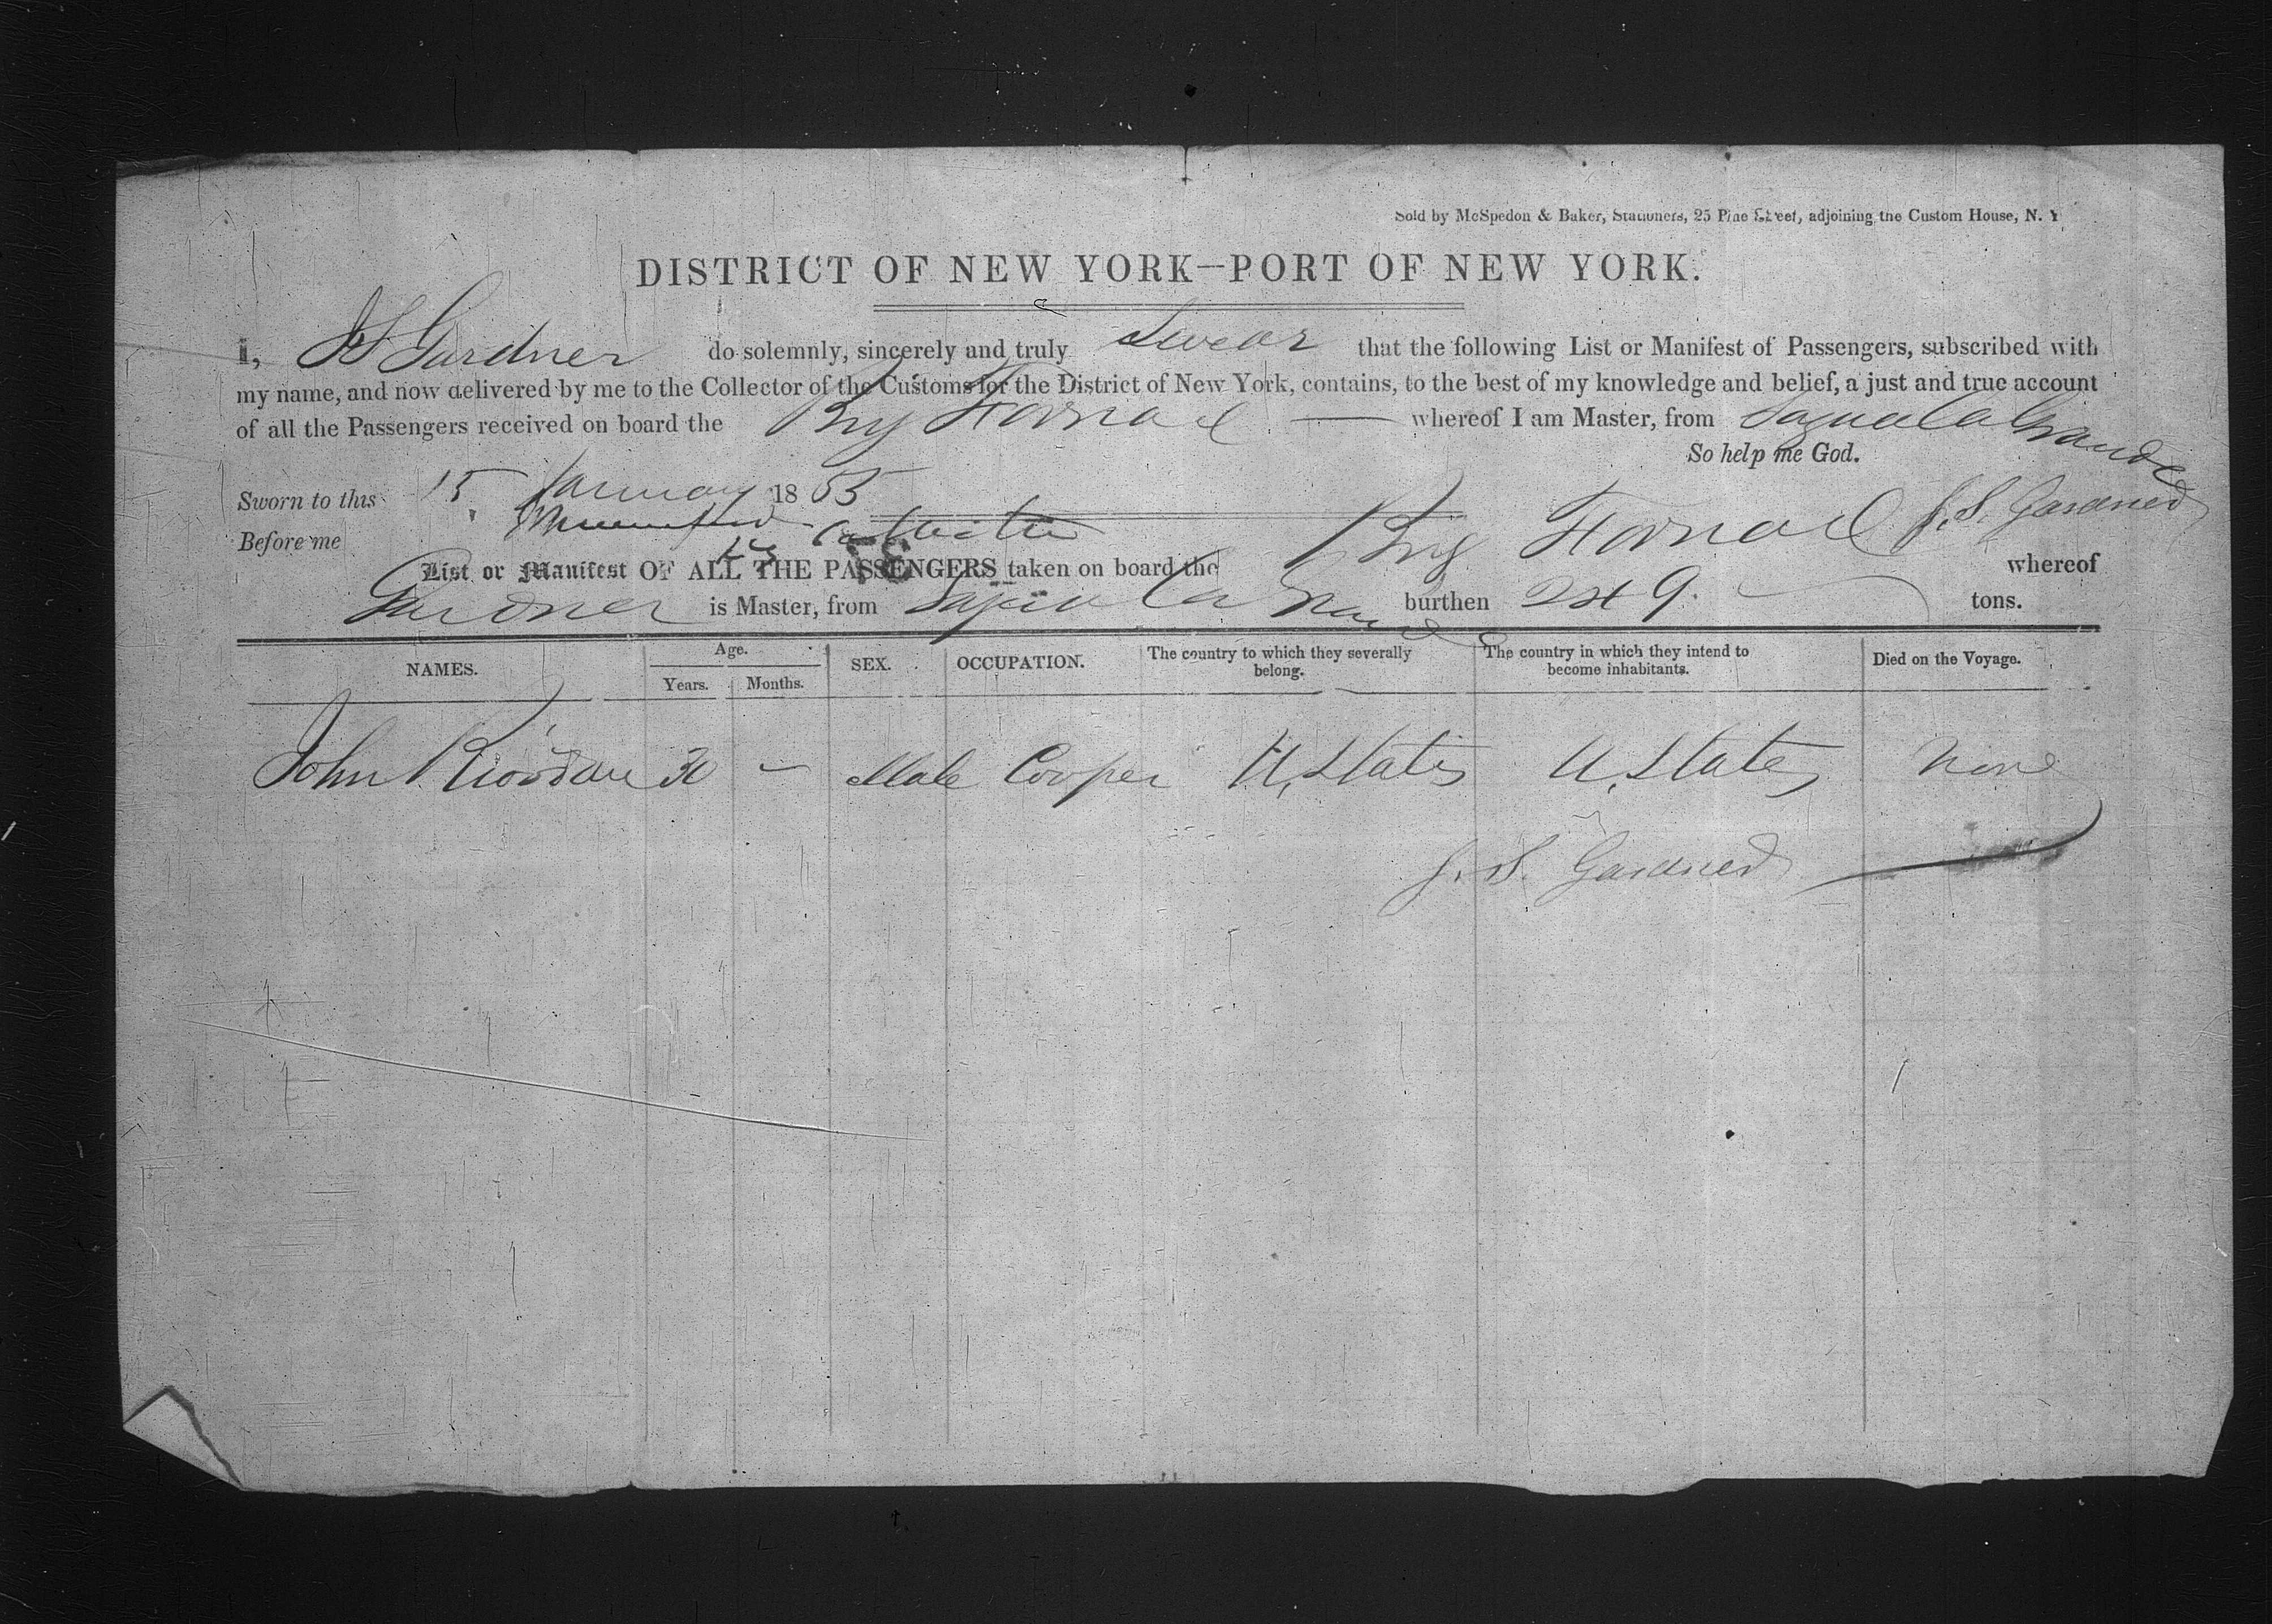 Sold by McSpedon & Baker, Stationers, 25 Pine Street, adjoining the Custom House, N. Y
DISTRICT OF NEW YORK—PORT OF NEW YORK.
I, J S Gardner do solemnly, sincerely and truly Swear that the following List or Manifest of Passengers, subscribed with
my name, and now delivered by me to the Collector of the Customs for the District of New York, contains, to the best of my knowledge and belief, a just and true account
of all the Passengers received on board the Brig — whereof I am Master, from Sagua la Grande
So help me God.
Sworn to this 15 January 18
J. S. Gardner
Before me Collector
List or Manifest OF ALL THE PASSENGERS taken on board the Brig whereof
Gardner is Master, from Sagua la Grande burthen tons.
NAMES. Age. Years. Months. SEX. OCCUPATION. The country to which they severally belong. The country in which they intend to become inhabitants. Died on the Voyage.
John Riordan 30 – Male Cooper U, States U, States None
J. S. Gardner